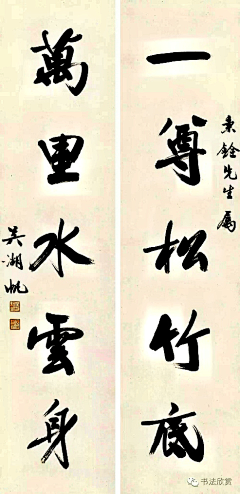 秉銓先生属
一尊松竹底
萬里水雲身
吴湖帆
书法欣赏